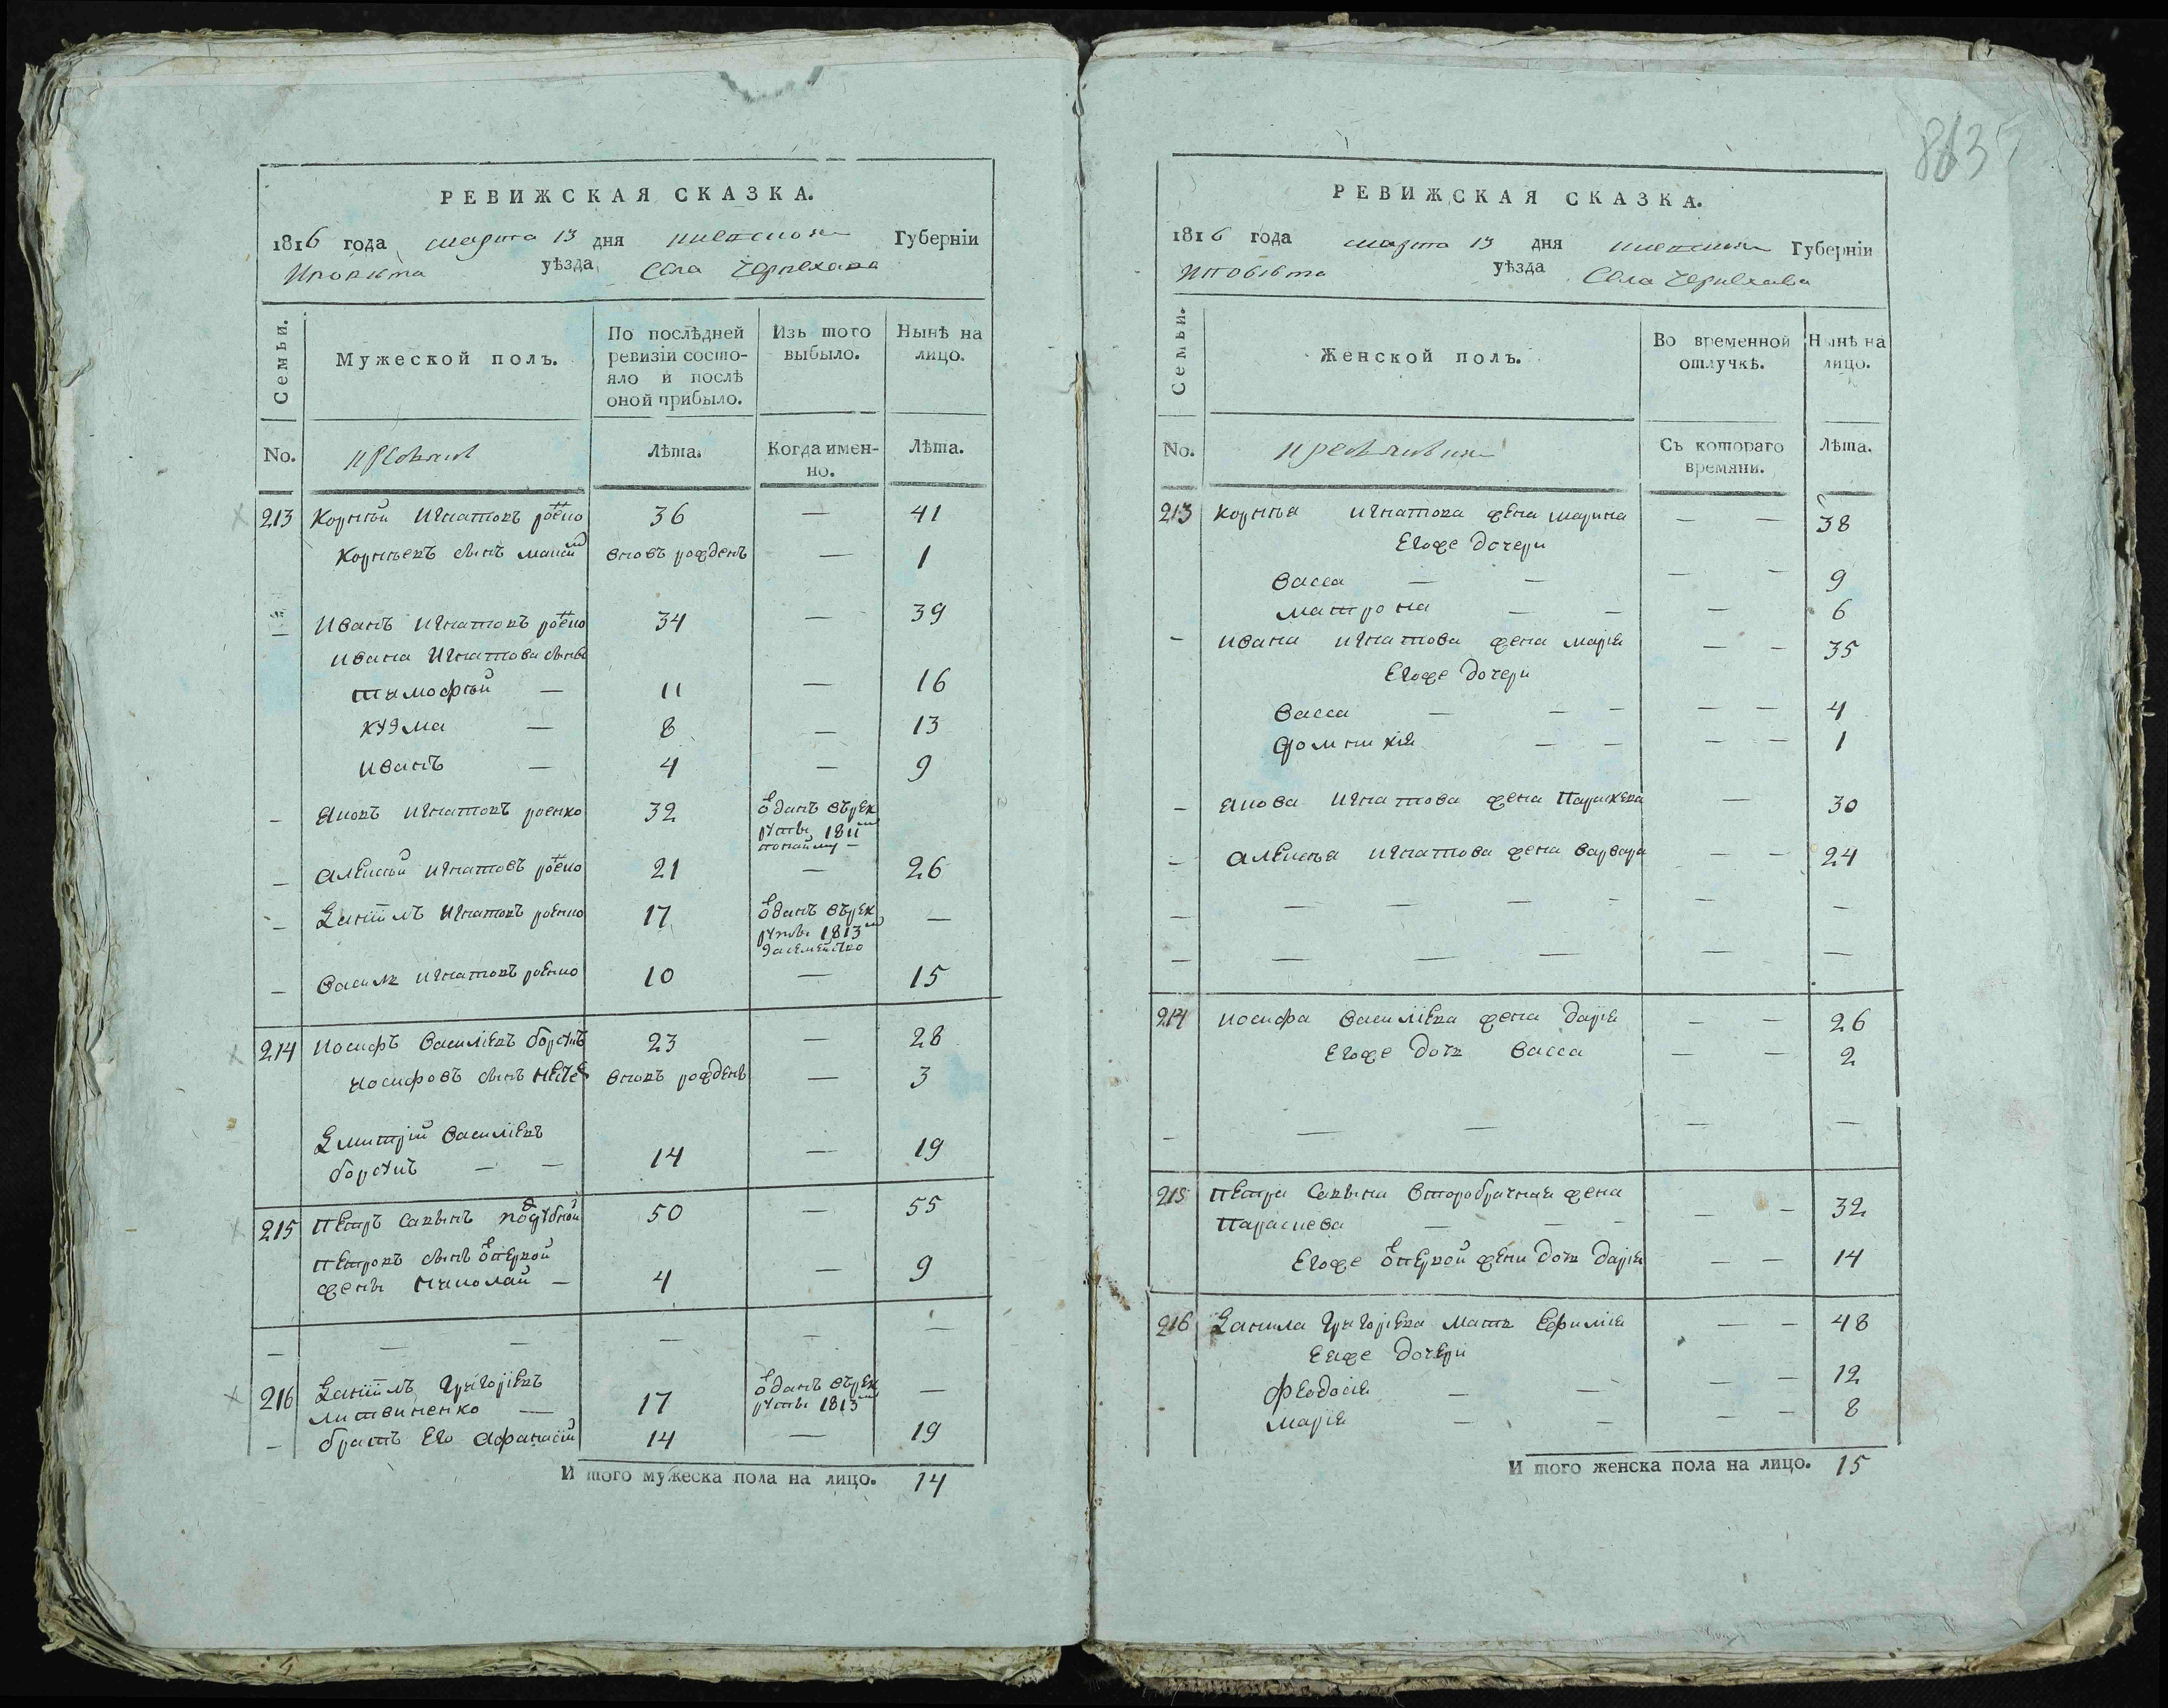 РЕВИЖСКАЯ СКАЗКА.
1816 года марта 13 дня киевской Губерніи
уѣзда Села Чернехова
Семьи.
Мужеской полъ.
По послѣдней ревизіи состо-
яло и послѣ
оной прибыло.
Изъ того
выбыло.
Нынѣ на
лицо.
No.
Лѣта.
Когда имен-
но.
Лѣта.
213 Корнѣй Игнатовъ роенко 36 — 41
Корнѣевъ сынъ вновь рожденъ — 1
Иванъ Игнатовъ роенко 34 — 39
Ивана Игнатова сыны
тимофѣй — 11 — 16
кузма — 8 — 13
иванъ — 4 — 9
— Яковъ Игнатовъ роенко 32 Отданъ въ рек
рути 1811
— алексѣй Игнатовъ роенко 21 — 26
— Данiилъ Игнатовъ роенко 17 Отданъ въ рек —
рути 1813
— василь Игнатовъ роенко 10 — 15
214 Иосифъ василіевъ 23 — 28
иосифовъ сынъ вновь рожденъ — 3
Дмитрій василіевъ
— — 14 — 19
215 петръ савинъ 50 — 55
петровъ сынъ отпервой
жены николай — 4 — 9
— — — — — —
216 Данiилъ григоріевъ Отданъ въ рек —
литвиненко — 17 рути 1813
— братъ его афанасій 14 — 19
И того мужеска пола на лицо. 14
863
РЕВИЖСКАЯ СКАЗКА.
1816 года марта 13 дня киевской Губерніи
уѣзда Села Чернехова
Семьи.
Женской полъ.
Во временной
отлучкѣ.
Нынѣ на
лицо.
No.
Съ котораго
времяни.
Лѣта.
213 Корнѣя Игнатова жена марина — — 38
Егоже дочери
васса — — — — 9
матрона — — — 6
— ивана игнатова жена марія — — 35
Егоже дочери
васса — — — — — 4
домникія — — — — 1
— Якова игнатова жена параскева — 30
— алексѣя игнатова жена варвара — — 24
— — — — — — —
— — — — — —
214 иосифа василіева жена дарія — — 26
Егоже дочь васса — — 2
— — — — —
215 петра савина второбрачная жена
параскева — — — — — 32
Егоже отпервой жены дочь дарія — — 14
216 Данила григоріева мать Ефимія — — 48
Еяже дочери
феодосія — — — — 12
марія — — — — 8
И того женска пола на лицо. 15